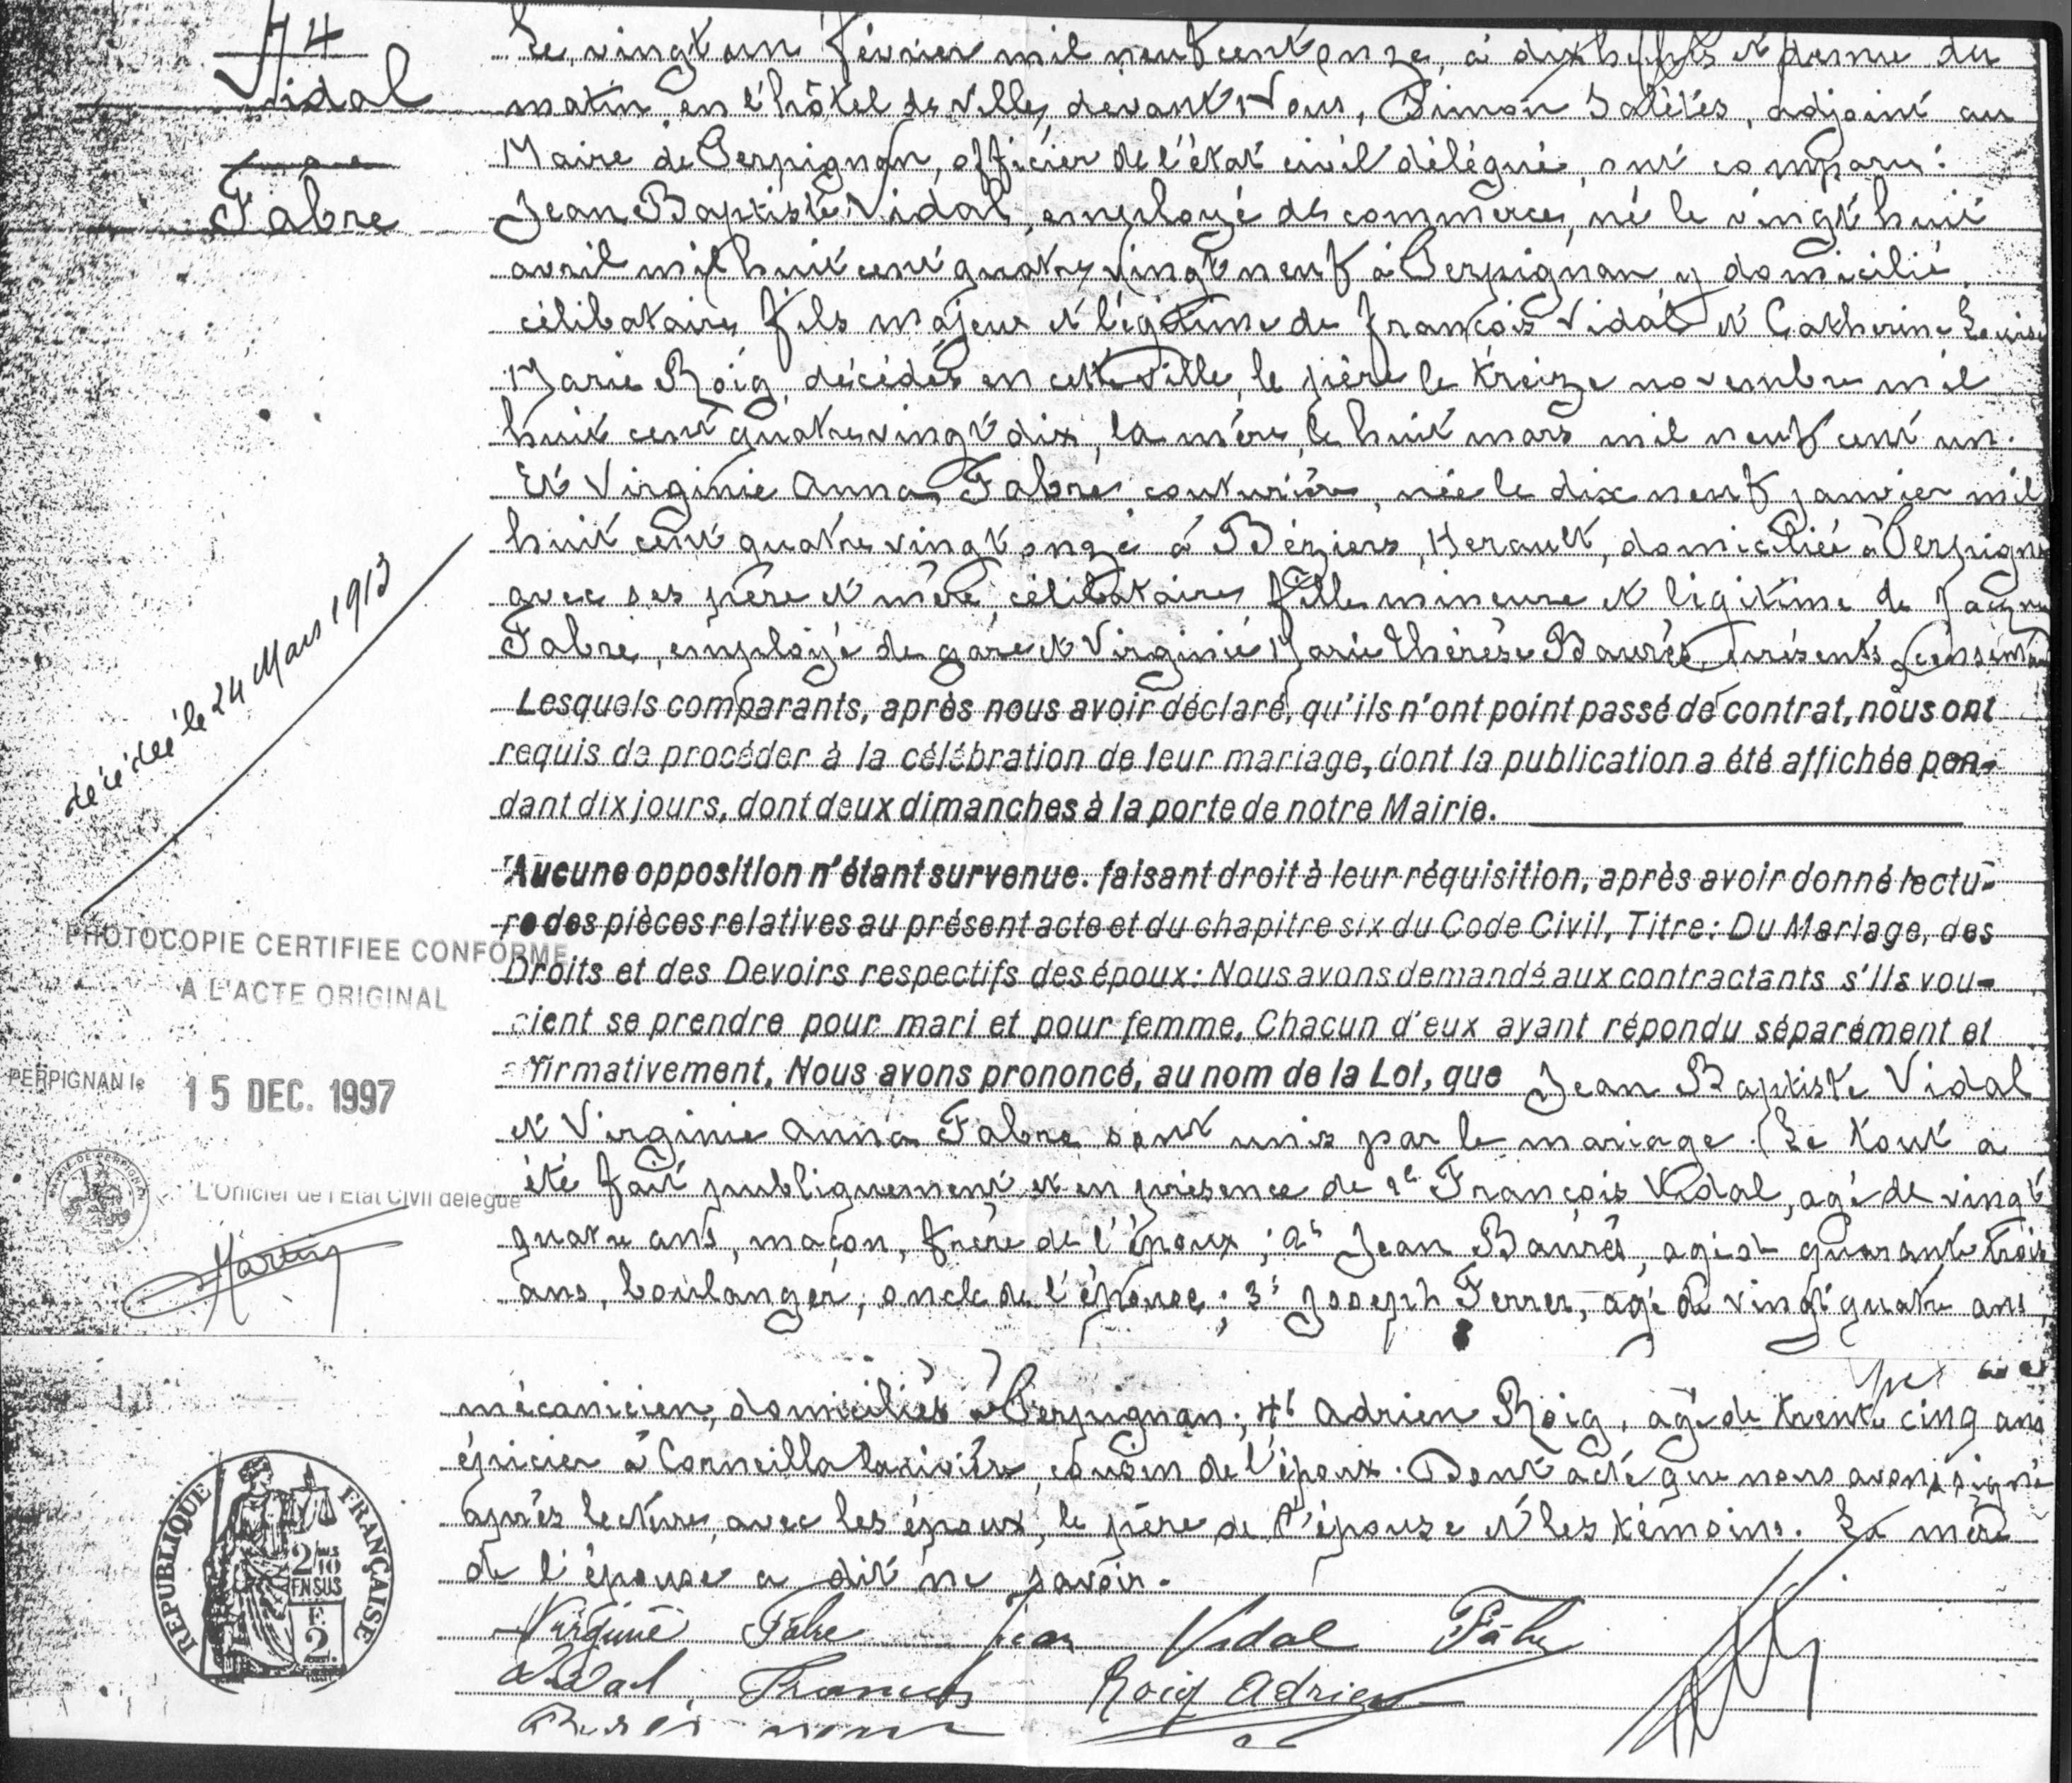 74
Vidal
Fabre
Le vingt un février mil neuf cent onze, à dix heures et demie du
matin en l'hôtel de ville, devant Nous, Simon, adjoint au
Maire de Perpignan, officier de l'état civil délégué, ont comparu:
Jean Baptiste Vidal, employé de commerce, né le vingt huit
avril mil huit cent quatre vingt neuf à Perpignan y domicilié,
célibataire, fils majeur et légitime de François Vidal et Catherine Louise
Marie Roig, décédés en cette ville, le père le treize novembre mil
huit cent quatre vingt dix, la mère, le huit mars mil neuf cent un.
Et Virginie Anna Fabre, couturière, née le dix neuf janvier mil
huit cent quatre vingt onze à Béziers, Herault, domiciliée à Perpignan
avec ses père et mère, célibataire, fille mineure et légitime de Jacques
Fabre, employé de gare et Virginie Marie Thérèse Baurès, présents
Lesquels comparants, après nous avoir déclaré, qu'ils n'ont point passé de contrat, nous ont
requis de procéder à la célébration de leur mariage, dont la publication a été affichée pen-
dant dix jours, dont deux dimanches à la porte de notre Mairie.
Aucune opposition n'étant survenue. faisant droit à leur réquisition, après avoir donné lectu-
re des pièces relatives au présent acte et du chapitre six du Code Civil, Titre: Du Mariage, des
Droits et des Devoirs respectifs des époux: Nous avons demandé aux contractants s'ils vou-
aient se prendre pour mari et pour femme, Chacun d'eux ayant répondu séparément et
affirmativement, Nous avons prononcé, au nom de la Loi, que Jean Baptiste Vidal
et Virginie Anna Fabre sont unis par le mariage. Le tout a
été fait publiquement et en présence de 1° François Vidal, agé de vingt
quatre ans, maçon, frère de l'époux; 2° Jean Baurès, agé de quarante trois
ans, boulanger, oncle de l'épouse; 3° Joseph Ferrer, agé de vingt quatre ans,
mécanicien, domiciliés à Perpignan; 4° Adrien Roig, agé de trente cinq ans
épicier à Corneilla larivière, cousin de l'époux. Dont acte que nous avons signé
après lecture, avec les époux, le père de l'épouse et les témoins. La mère
de l'épouse a dit ne savoir.
Virginie Fabre Jean Vidal Fabre
Vidal François Roig Adrien
décédée le 24 Mars 1913
PHOTOCOPIE CERTIFIEE CONFORME
A L'ACTE ORIGINAL
PERPIGNAN le 15 DEC. 1997
MAIRIE DE PERPIGNAN
L'Officier de l'Etat Civil délégué
Martin
RÉPUBLIQUE FRANÇAISE
2/10
EN SUS
2